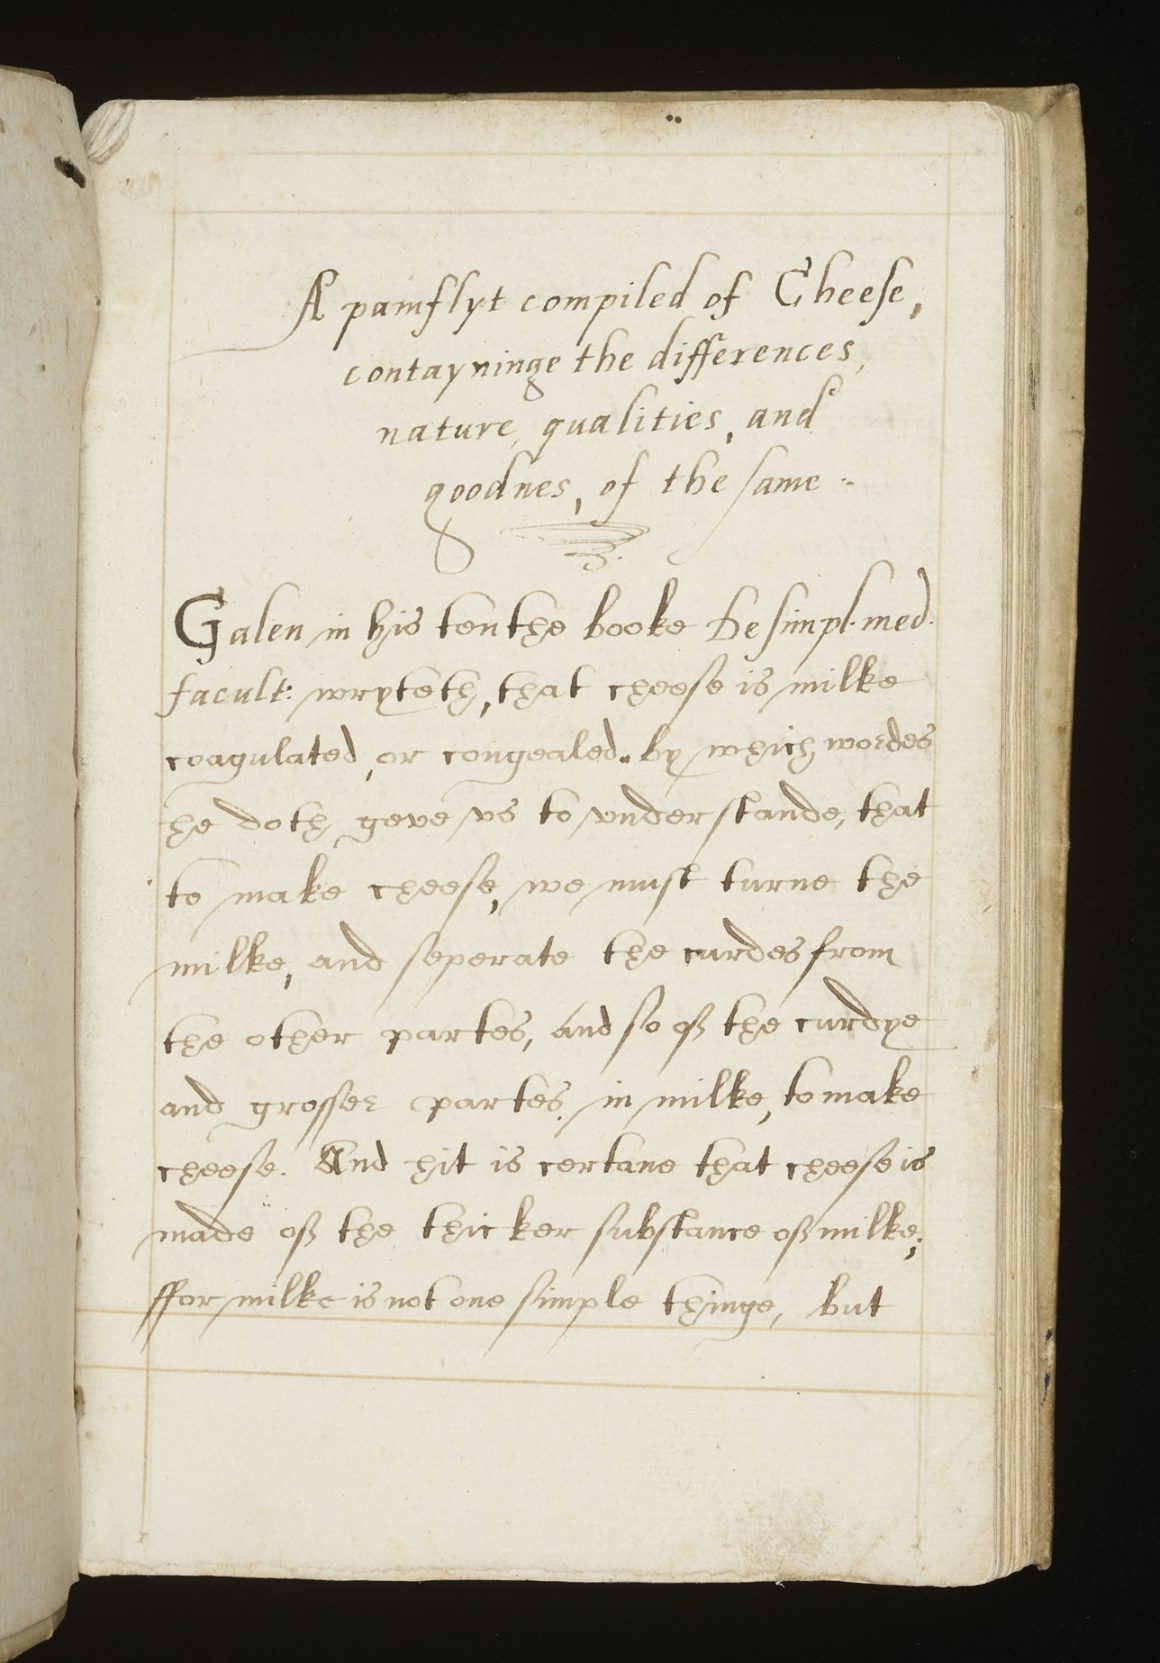 A pamflyt compiled of Cheese,
contayninge the differences,
nature, qualities, and
goodnes, of the same
Galen in his tenthe booke De simpl. med.
facult: wryteth, that cheese is milke
coagulated, or congealed. by which wordes
he doth geve vs to vnderstande, that
to make cheese, we must turne the
milke, and seperate the curdes from
the other partes, And so of the curdye
and grosser partes in milke, to make
cheese. And hit is certane that cheese is
made of the thicker substance of milke;
ffor milke is not one simple thinge, but